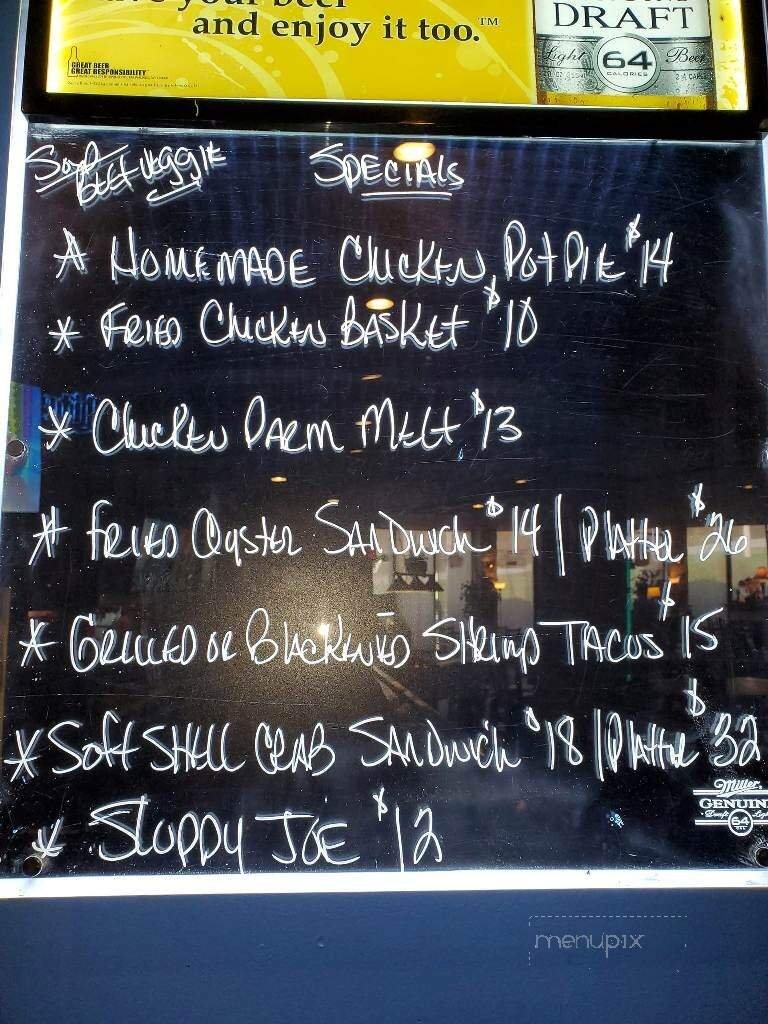 your beer
and enjoy it too.™
GREAT BEER
GREAT RESPONSIBILITY
DRAFT
Light 64 Beer
CALORIES
Soup
BEEF VEGGIE
SPECIALS
* HOMEMADE CHICKEN POT PIE $14
* FRIED CHICKEN BASKET $10
* CHICKEN PARM MELT $13
* FRIED OYSTER SANDWICH $14 | PLATTER $26
* GRILLED OR BLACKENED SHRIMP TACOS $15
* SOFT SHELL CRAB SANDWICH $18 | PLATTER $32
* SLOPPY JOE $12
Miller
GENUINE
Draft 64 Light
menupix